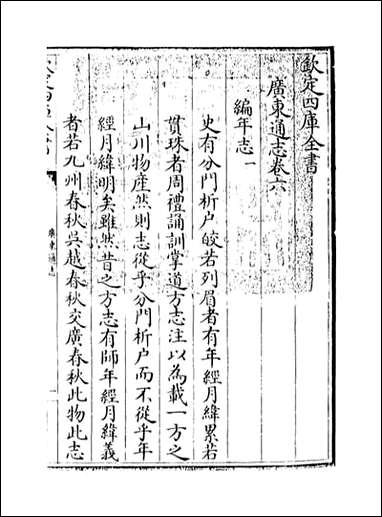 欽定四庫全書
廣東通志卷六
編年志一
史有分門析户皎若列眉者有年經月緯累若
貫珠者周禮誦訓掌道方志注以為載一方之
山川物産然則志從乎分門析户而不從乎年
經月緯明矣雖然昔之方志有師年經月緯義
者若九州春秋吳越春秋交廣春秋此物此志
廣東通志